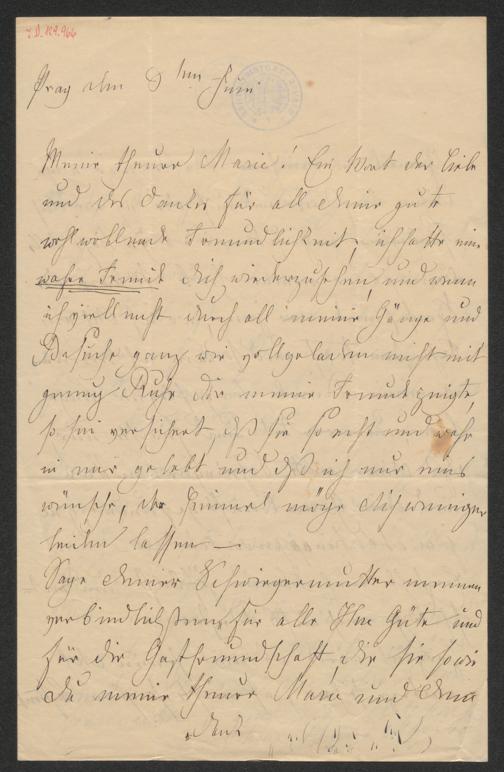 I.N. 129.966
Prag den 8ten Juni
Meine theure Marie! Ein Wort der Liebe
und des Dankes für all deine gute
wohlwollende Freundlichkeit, ich hatte eine
wahre Freude dich wiederzusehen, und wenn
ich vielleicht durch all meine Gänge und
Besuche ganz wie vollgeladen nicht mit
genug Ruhe dir meine Freude zeigte,
so sei versichert, daß sie so echt und wahr
in mir gelebt und daß ich nur eins
wünsche, der Himmel möge dich weniger
leiden lassen —
Sage deiner Schwiegermutter meinen
verbindlichsten für alle Ihre Güte und
für die Gastfreundschaft, die sie sowie
du meine theure Marie und dein